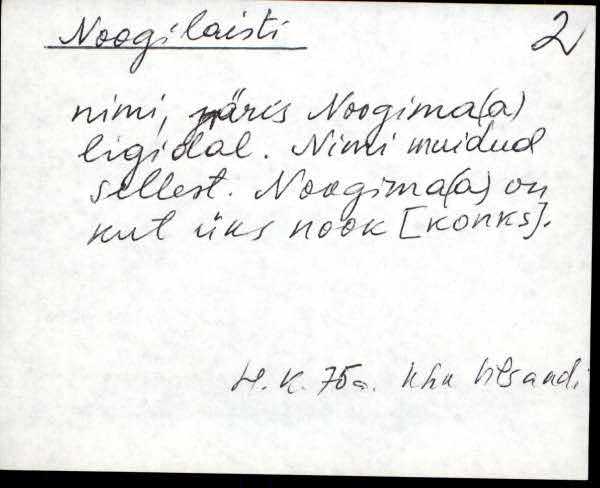 Noogilaisti 2
nimi, päris Noogima(a)
ligidal. Nimi muidud
sellest. Noogima(a) on
kut üks nook [konks].
H. K. 75a. Khn Vilsandi